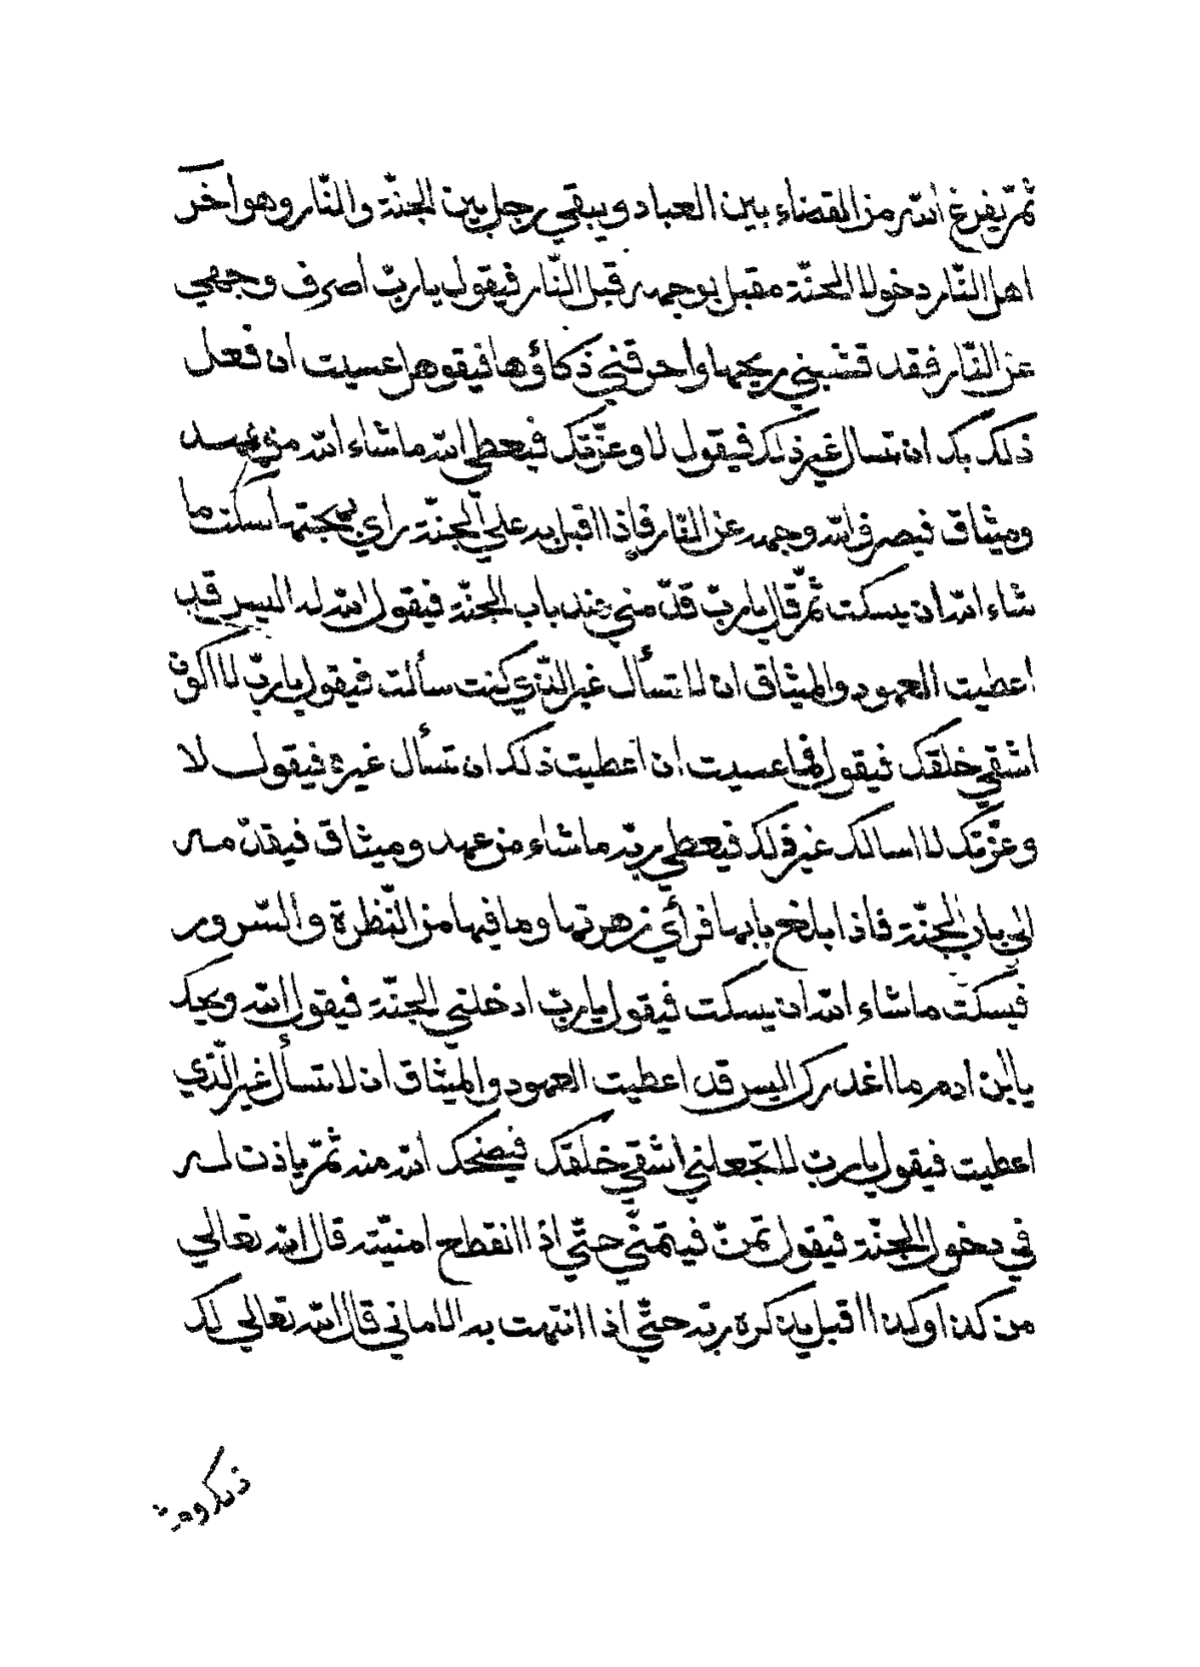 ثمّ يفرغ الله من القضاء بين العباد ويبقي رجل بين الجنّة والنّار وهو آخر
اهل النّار دخولا الجنّة مقبل بوجهه قبل النّار فيقول يا ربّ اصرف وجهي
عن النّار فقد قشبني ريحها واحرقني ذكاؤها فيقول هل عسيت ان فعل
ذلك بك ان تسال غير ذلك فيقول لا وعزّتك فيعطي الله ما شاء الله من عهد
وميثاق فيصرف الله وجهه عن النّار فإذا اقبل به علي الجنّة راي بهجتها سكت ما
شاء الله ان يسكت ثمّ قال يا ربّ قدّمني عند باب الجنّة فيقول الله له اليس قد
اعطيت العهود والميثاق ان لا تسأل غير الّذي كنت سألت فيقول يا ربّ لا اكون
اشقي خلقك فيقول فما عسيت ان اعطيت ذلك ان تسأل غيره فيقول لا
وعزّتك لا اسالك غير ذلك فيعطي ربّه ما شاء من عهد وميثاق فيقدّمه
الي باب الجنّة فاذا بلغ بابها فرأي زهرتها وما فيها من النّظرة والسّرور
فيسكت ما شاء الله ان يسكت فيقول يا ربّ ادخلني الجنّة فيقول الله ويحك
يا ابن ادم ما اغدرك اليس قد اعطيت العهود والميثاق ان لا تسأل غير الّذي
اعطيت فيقول يا ربّ لا تجعلني اشقي خلقك فيضحك الله منه ثمّ ياذن له
في دخول الجنّة فيقول تمنّ فيتمنّي حتّي اذا انقطع امنيّته قال الله تعالي
من كذا وكذا اقبل يذكره ربّه حتّي اذا انتهت به الاماني قال الله تعالي لك
ذلك ومثله